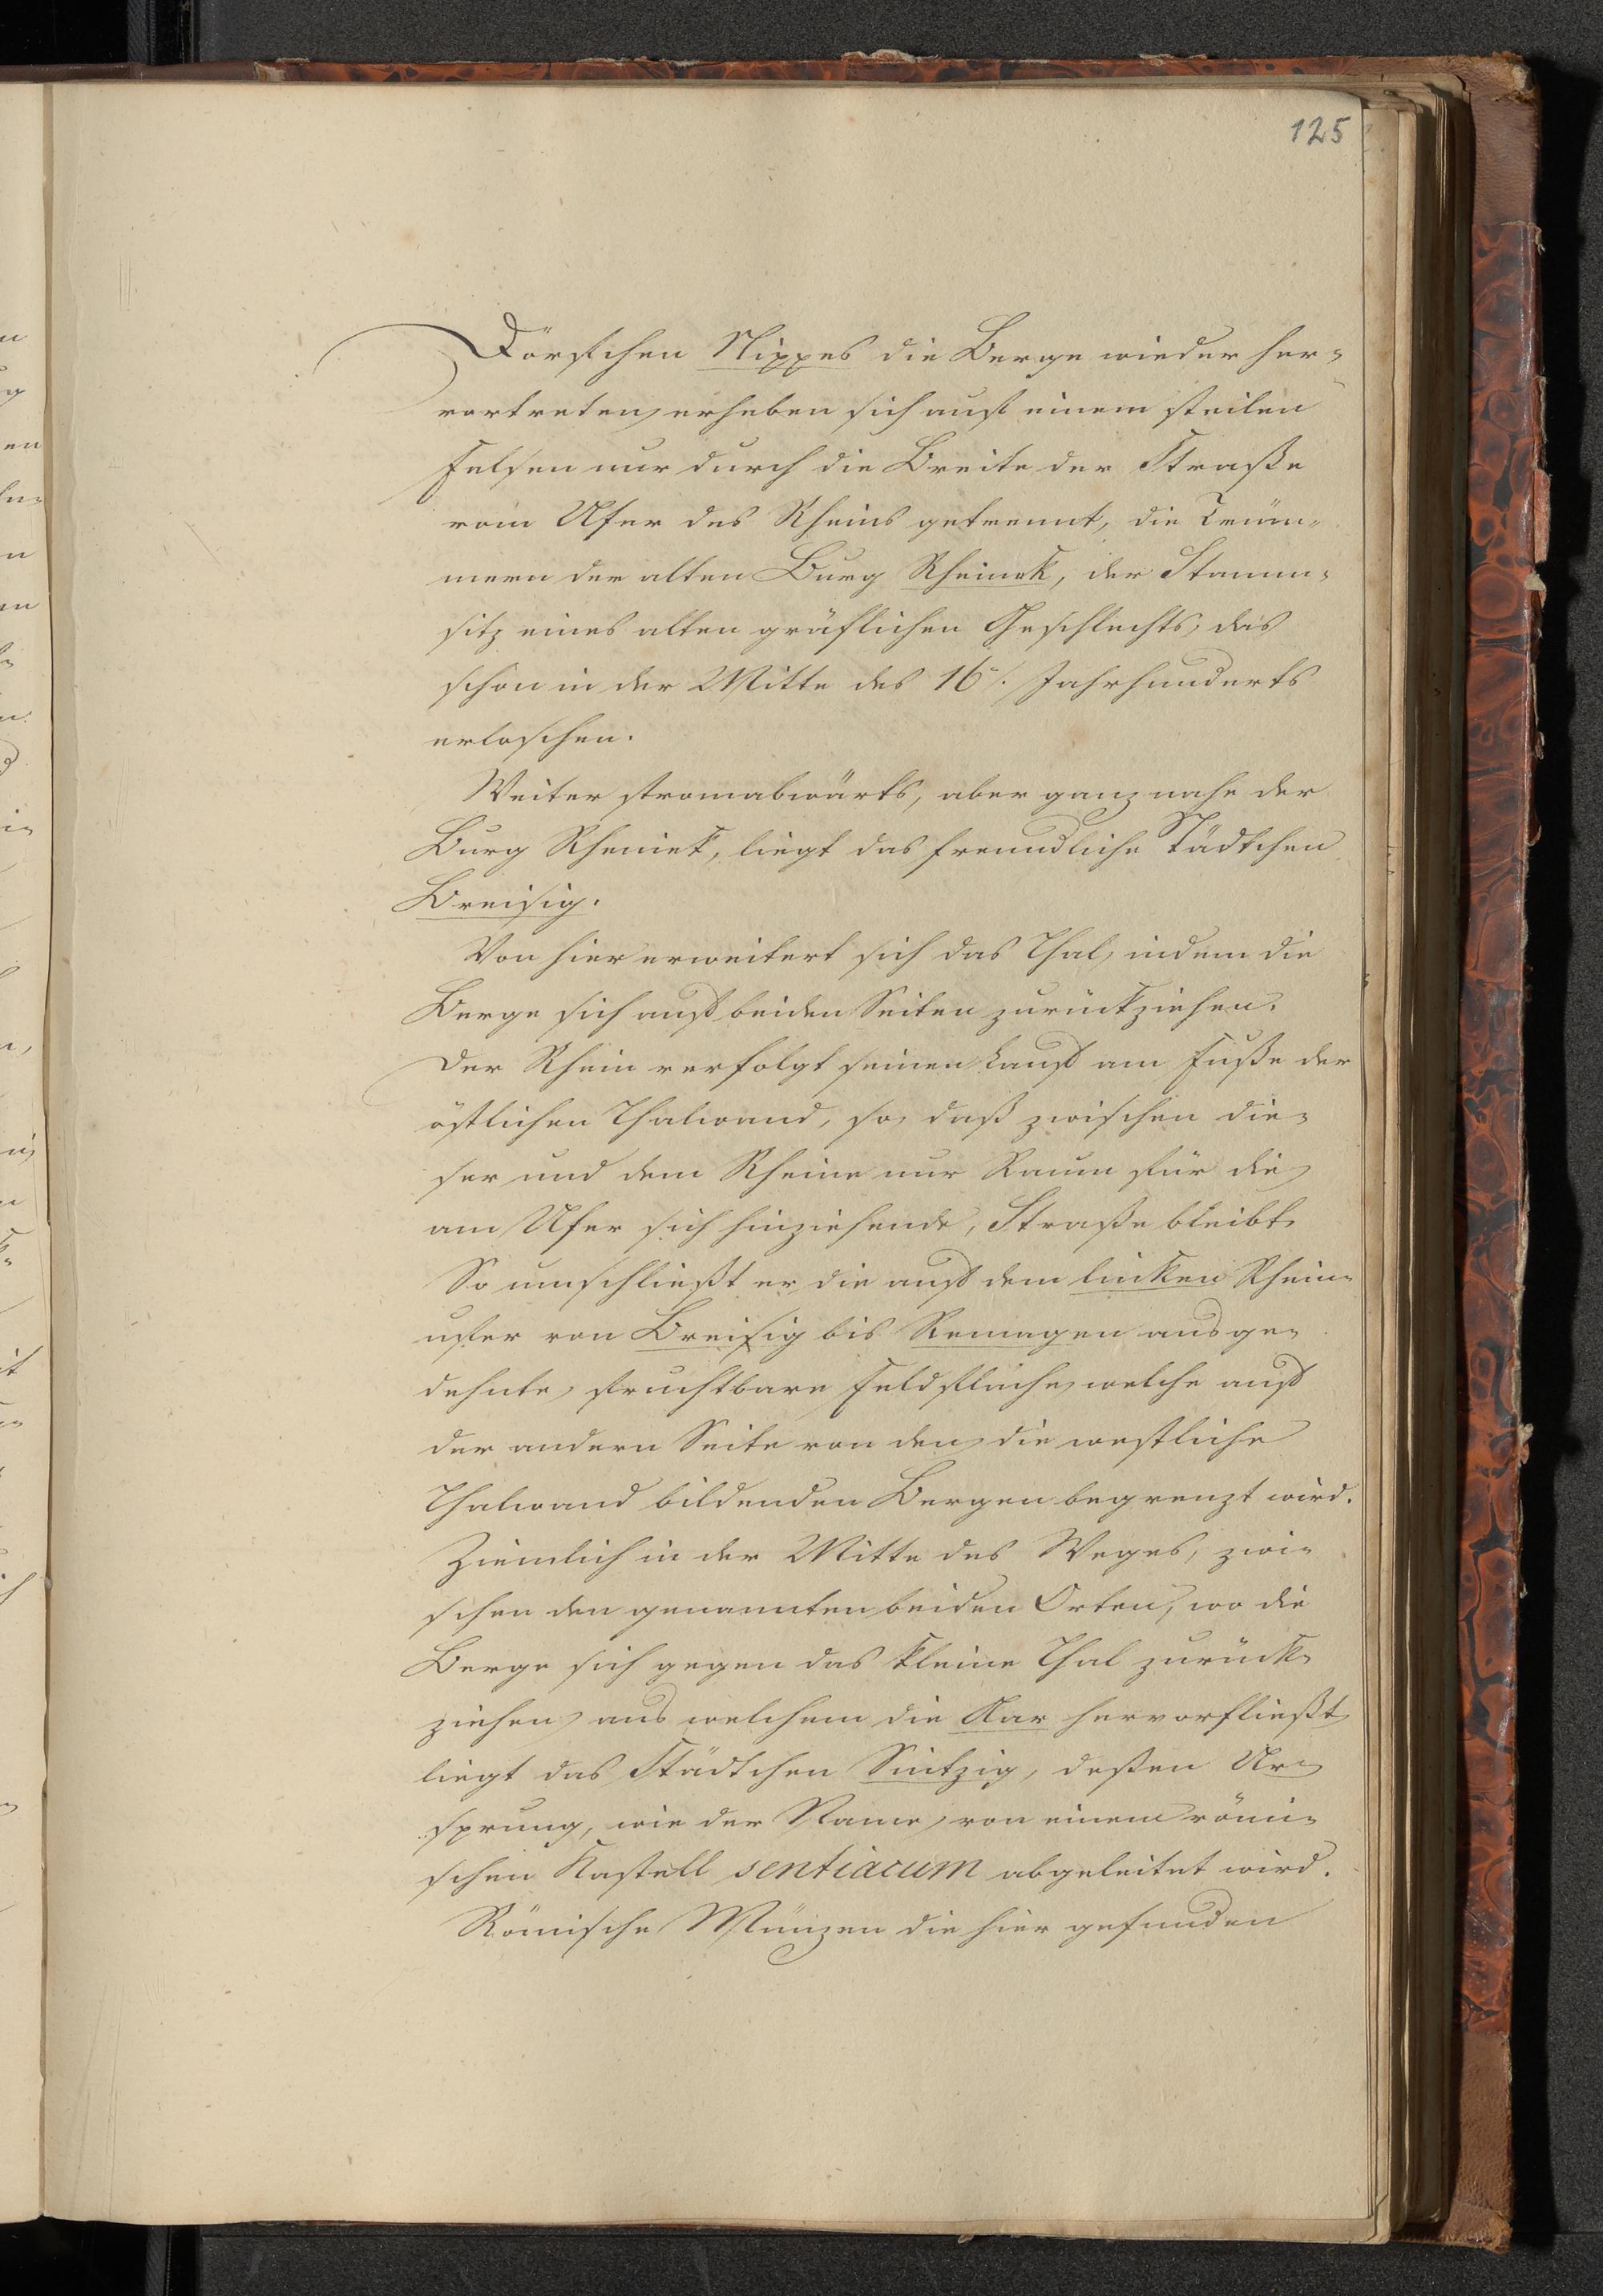 125
Dörfchen Nippes die Berge wieder her-
vortreten, erheben sich auf einem steilen
Felsen nur durch die Breite der Straße
vom Ufer des Rheins getrennt, die Trüm-
mern der alten Burg Rheinek, der Stamm-
sitz eines alten gräflichen Geschlechts, das
schon in der Mitte des 16t. Jahrhunderts
erloschen.
Weiter stromabwärts, aber ganz nahe der
Burg Rheniek, liegt das freundliche Städtchen
Breisig.
Von hier erweitert sich das Thal, indem die
Berge sich auf beiden Seiten zurückziehen.
Der Rhein verfolgt seinen Lauf am Fuße der
östlichen Thalwand, so, daß zwischen die-
ser und dem Rheine nur Raum für die
am Ufer sich hinziehende, Straße bleibt
So umschließt er, die auf dem linken Rhein-
ufer von Breisig bis Remagen ausge-
dehnte, fruchtbare Feldfläche, welche auf
der andern Seite von den, die westliche
Thalwand bildenden Bergen begrenzt wird.
Ziemlich in der Mitte des Weges, zwi-
schen den genannten beiden Orten, wo die
Berge sich gegen das kleine Thal zurück-
ziehen, aus welchem die Aar hervorfließt,
liegt das Städtchen Sintzig, deßen Ur-
sprung, wie der Name, von einem römi-
schen Kastell sentiacum abgeleitet wird.
Römische Münzen die hier gefunden